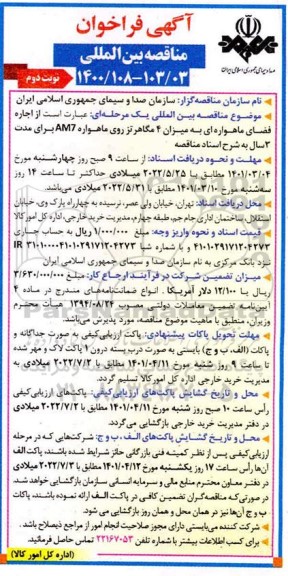 آگهی فراخوان
مناقصه بین المللی
۱۴۰۰/۱۰۸-۱۰۳/۰۳
نوبت دوم
صدا و سیمای جمهوری اسلامی ایران
نام سازمان مناقصه‌گزار: سازمان صدا و سیمای جمهوری اسلامی ایران
موضوع مناقصه بین‌المللی یک مرحله‌ای: عبارت است از اجاره
فضای ماهواره ای به میزان ۴ مگاهرتز روی ماهواره AM7 برای مدت
۳ سال به شرح اسناد مناقصه
مهلت و نحوه دریافت اسناد: از ساعت ۹ صبح روز چهارشنبه مورخ
۱۴۰۱/۰۳/۰۴ مطابق با ۲۰۲۲/۵/۲۵ میلادی حداکثر تا ساعت ۱۴ روز
سه‌شنبه مورخ ۱۴۰۱/۰۳/۱۰ مطابق با ۲۰۲۲/۵/۳۱ میلادی می‌باشد.
محل دریافت اسناد: تهران، خیابان ولی عصر، نرسیده به چهارراه پارک وی، خیابان
استقلال، ساختمان اداری جام جم، طبقه چهارم، مدیریت خرید خارجی، اداره کل امور کالا
قیمت اسناد و نحوه واریز وجه: مبلغ ۱/۰۰۰/۰۰۰ ریال به حساب جاری
نزد بانک مرکزی به نام سازمان صدا و سیما.
میزان تضمین شرکت در فرآیند ارجاع کار: مبلغ ۳/۶۳۰/۰۰۰/۰۰۰
ریال یا ۱۲/۱۰۰ دلار آمریکا. انواع ضمانت‌نامه‌های مندرج در ماده ۴
آیین‌نامه تضمین معاملات دولتی مصوب ۱۳۹۴/۰۸/۲۴ هیأت محترم
وزیران، منطبق با ماهیت موضوع مناقصه، مورد پذیرش می‌باشد.
مهلت تحویل پاکات پیشنهادی: پاکت ارزیابی‌کیفی به صورت جداگانه و
پاکات (الف، ب و ج) بایستی به صورت درب بسته درون ۱ پاکت لاک و مهر شده
تا ساعت ۹ روز شنبه مورخ ۱۴۰۱/۰۴/۱۱ مطابق با ۲۰۲۲/۷/۲ به
مدیریت خرید خارجی اداره کل امور کالا تسلیم گردد.
محل و تاریخ گشایش پاکت‌های ارزیابی‌کیفی: پاکت‌های ارزیابی‌کیفی
رأس ساعت ۱۰ صبح روز شنبه مورخ ۱۴۰۱/۰۴/۱۱ مطابق با ۲۰۲۲/۷/۲ میلادی
در دفتر مدیریت خرید خارجی بازگشایی می گردد.
محل و تاریخ گشایش پاکت‌های الف، ب و ج: شرکت‌هایی که در مرحله
ارزیابی‌کیفی پس از نظر کمیته فنی بازرگانی حائز شرایط شده باشند، پاکت الف
آن‌ها رأس ساعت ۱۷ روز یکشنبه مورخ ۱۴۰۱/۰۴/۱۲ مطابق با ۲۰۲۲/۷/۳ میلادی
در دفتر معاون محترم منابع مالی و سرمایه انسانی سازمان بازگشایی خواهد شد.
در صورتی‌که مناقصه‌گران تضمین کافی در پاکت الف ارائه نموده باشند، پاکات
ب و ج آن‌ها نیز در همان محل و همان روز بازگشایی می‌شود.
شرکت کننده می‌بایستی دارای مجوز صلاحیت انجام امور از مراجع ذیصلاح باشد.
برای کسب اطلاعات بیشتر با شماره تلفن ۲۲۱۶۷۰۵۳ تماس حاصل فرمائید.
(اداره کل امور کالا)